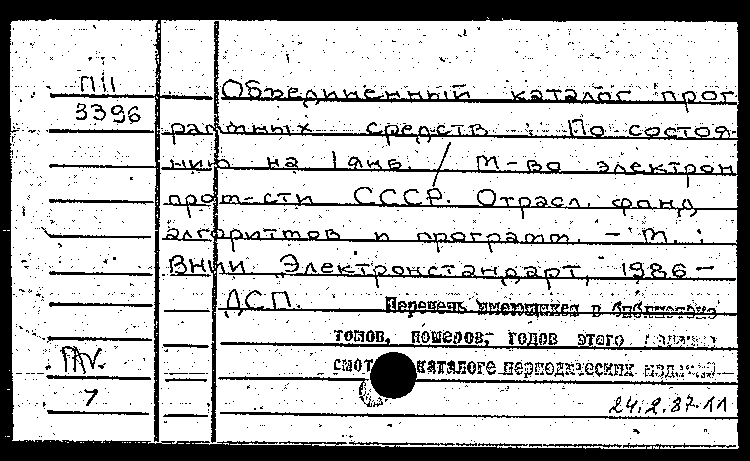 П11
3396
Объединенный каталог прог
раммных средств : По состоя-
нию на 1 янв. / М-во электрон
пром-сти СССР. Отрасл. фонд
алгоритмов и программ. - М. :
ВНИИ Электронстандарт, 1986 -
ДСП.
Перечень имеющихся в библиотеке
томов, номеров, годов этого издания
смот каталоге периодических изданий
7
24.2.87.11